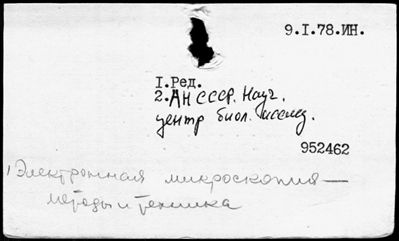 9.I.78.ИН.
I.Ред.
2.АН СССР. Науч.
центр биол. исслед.
952462
Электронная микроскопия —
методы и техника